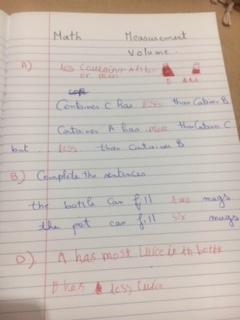 Math Measurement
Volume.
A)
or more
C A&B
Container C has less than Container B
Container A has more than Container C
but less than Container B
B) Complete the sentences
the bottle can fill two mugs
the pot can fill six mugs
D) A has most juice in
B has less juice